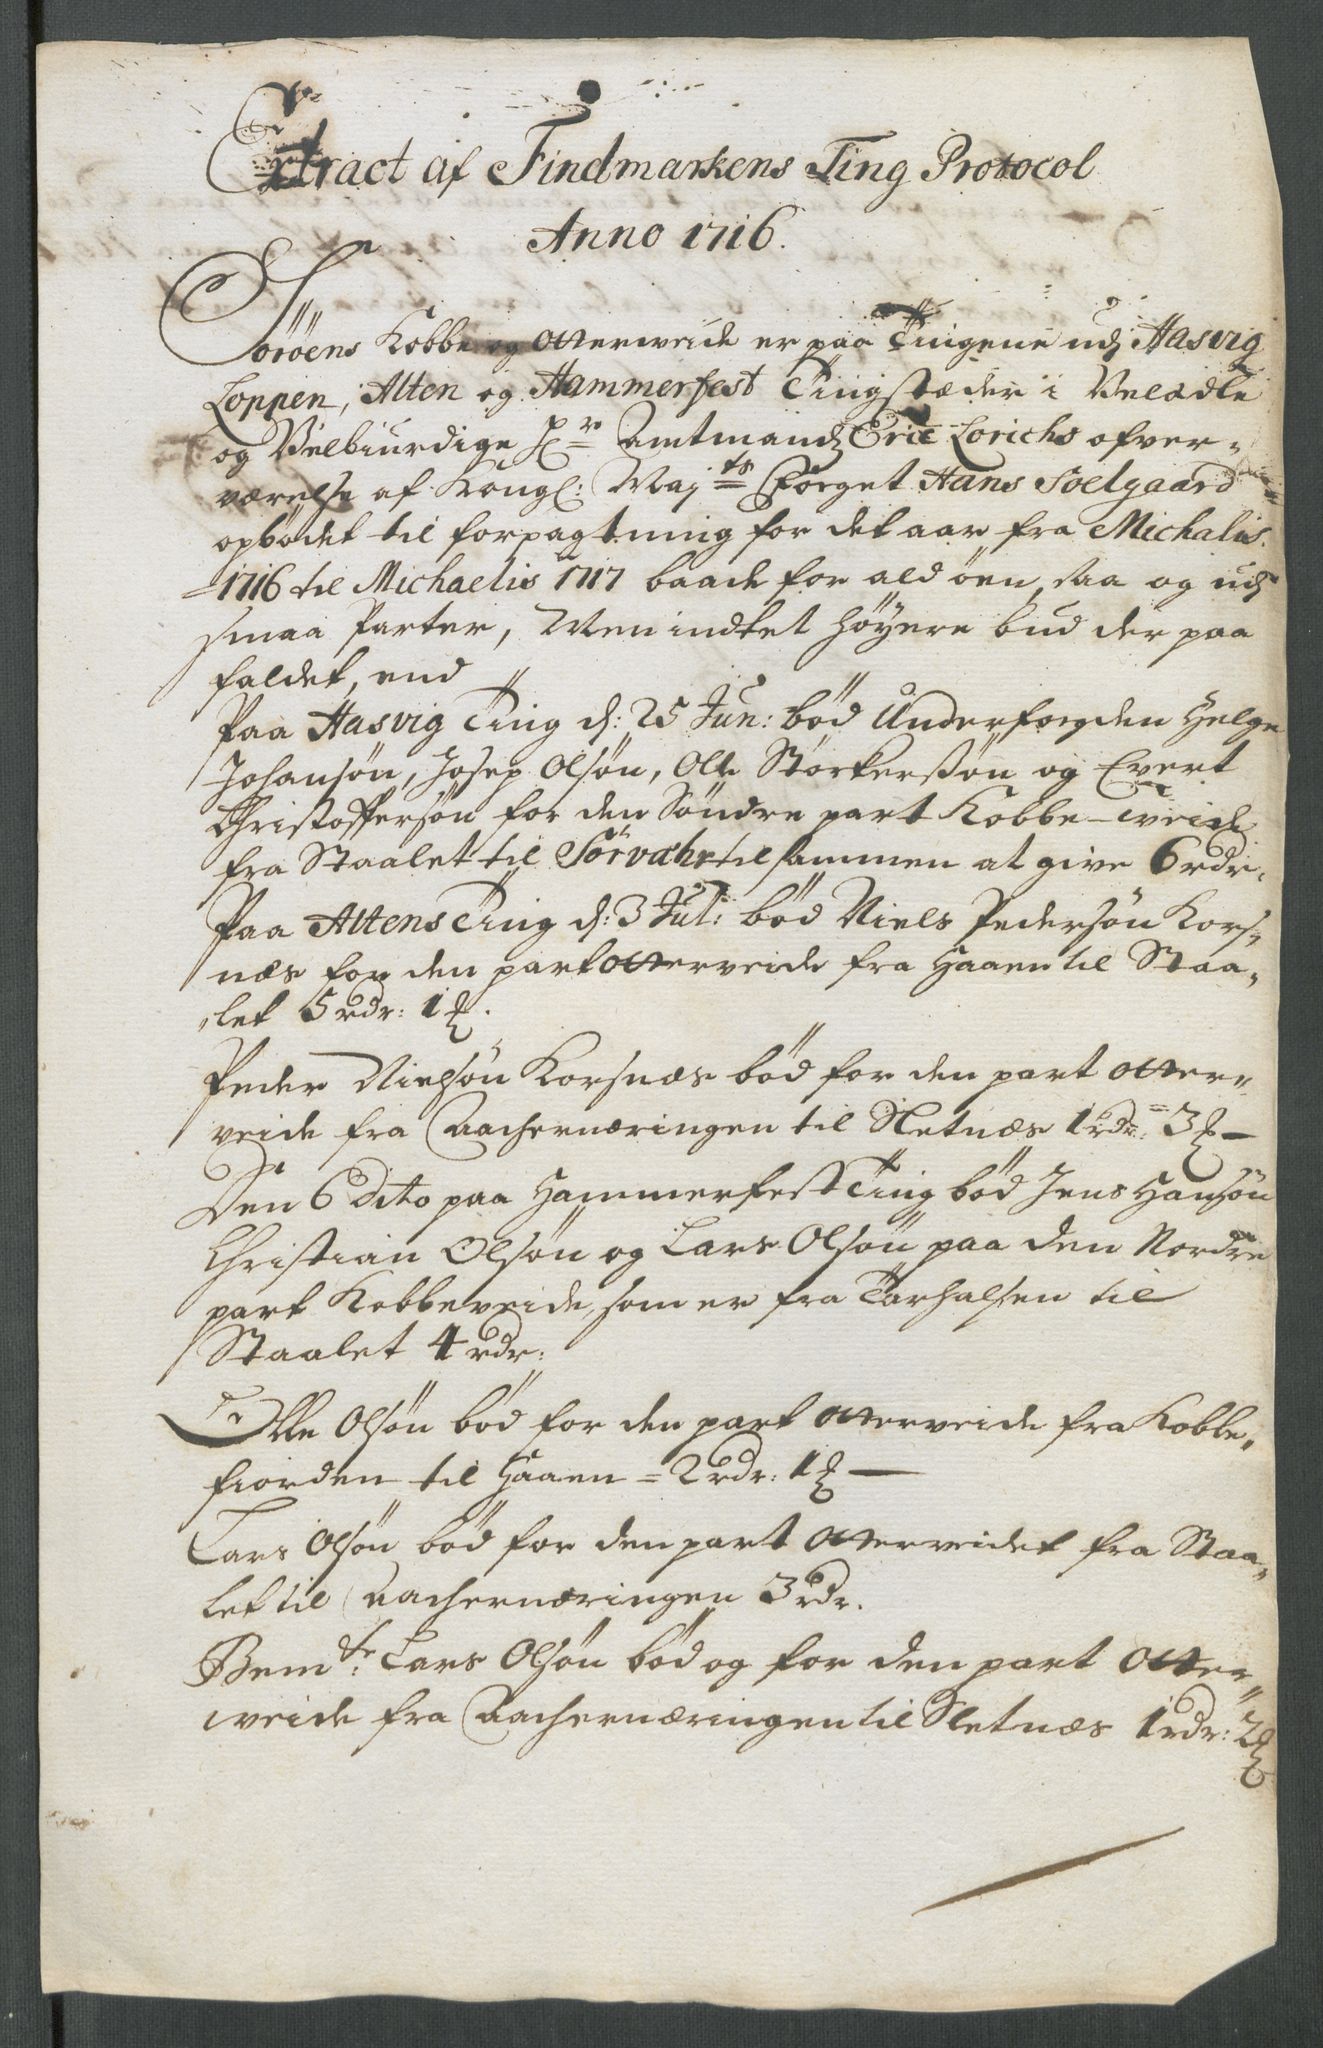 Extract af Findmarkens Ting Protocol
Anno 1716.
Söröens Kobbe og Otterveide er paa Tingene udj Hasvig
Loppen, Alten og Hammerfest Tingstæder i Velædle
og Velbiurdige Hr Amtmand Eric Lorichs ofver-
værelse af Kongl: Maj:ts Foget Hans Soelgaard
opbødet til forpagtning for det aar fra Michalis.
1716 til Michaelis 1717 baade for ald öen, saa og udj
smaa Parter, Men indtet höyere bud der paa
faldet, end
Paa Hasvig Ting d: 25 Jun: bød Underfogden Helge
Johansön, Josep Olsön, Olle Störkersön og Evert
Christoffersön for den Söndre part Kobbe-weide
fra Staalet til Sörvæhr tilsammen at give 6 rdr.
Paa Altens Ting d: 3 Jul: bød Niels Pedersön Kors-
næs for den part Otterveide fra Haaen til Staa-
let 5 rdr: 1 ℔.
Peder Nielsön Korsnæs bød for den part Otter-
veide fra Aachernæringen til Sletnæs 1 rdr: 3 ℔ —
Den 6 Dito paa Hammerfest Ting bød Jens Hansön
Christian Olsön og Lars Olsön paa den Nordre
part Kobbeveide, som er fra Tarhalsen til
Staalet 4 rdr:
Olle Olsön bød for den part Otterveide fra Kobbe-
fiorden til Haaen = 2 rdr: 1 ℔ —
Lars Olsön bød for den part Otterveidet fra Staa-
let til Aachernæringen 3 rdr.
Bem:te Lars Olsön bød og for den part Otter-
weide fra Aachernæringen til Sletnæs 1 rdr: 2 ℔